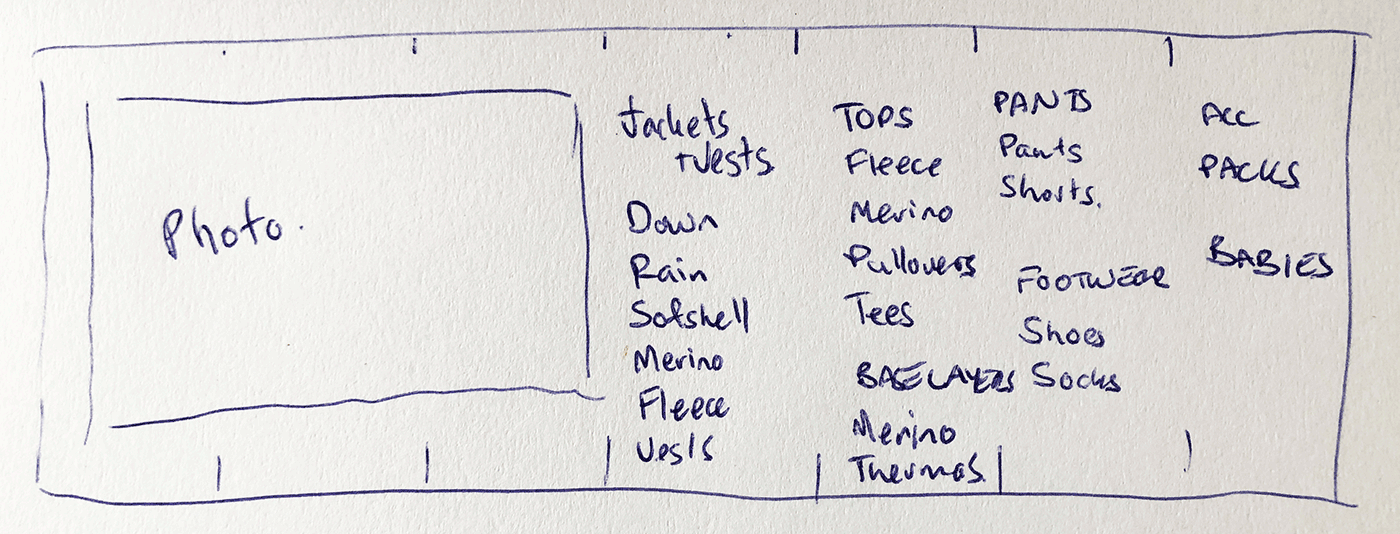 Photo.
Jackets
+Vests
Down
Rain
Softshell
Merino
Fleece
Vests
TOPS
Fleece
Merino
Pullovers
Tees
BASELAYERS
Merino
Thermals
PANTS
Pants
Shorts.
FOOTWEAR
Shoes
Socks
ACC
PACKS
BABIES